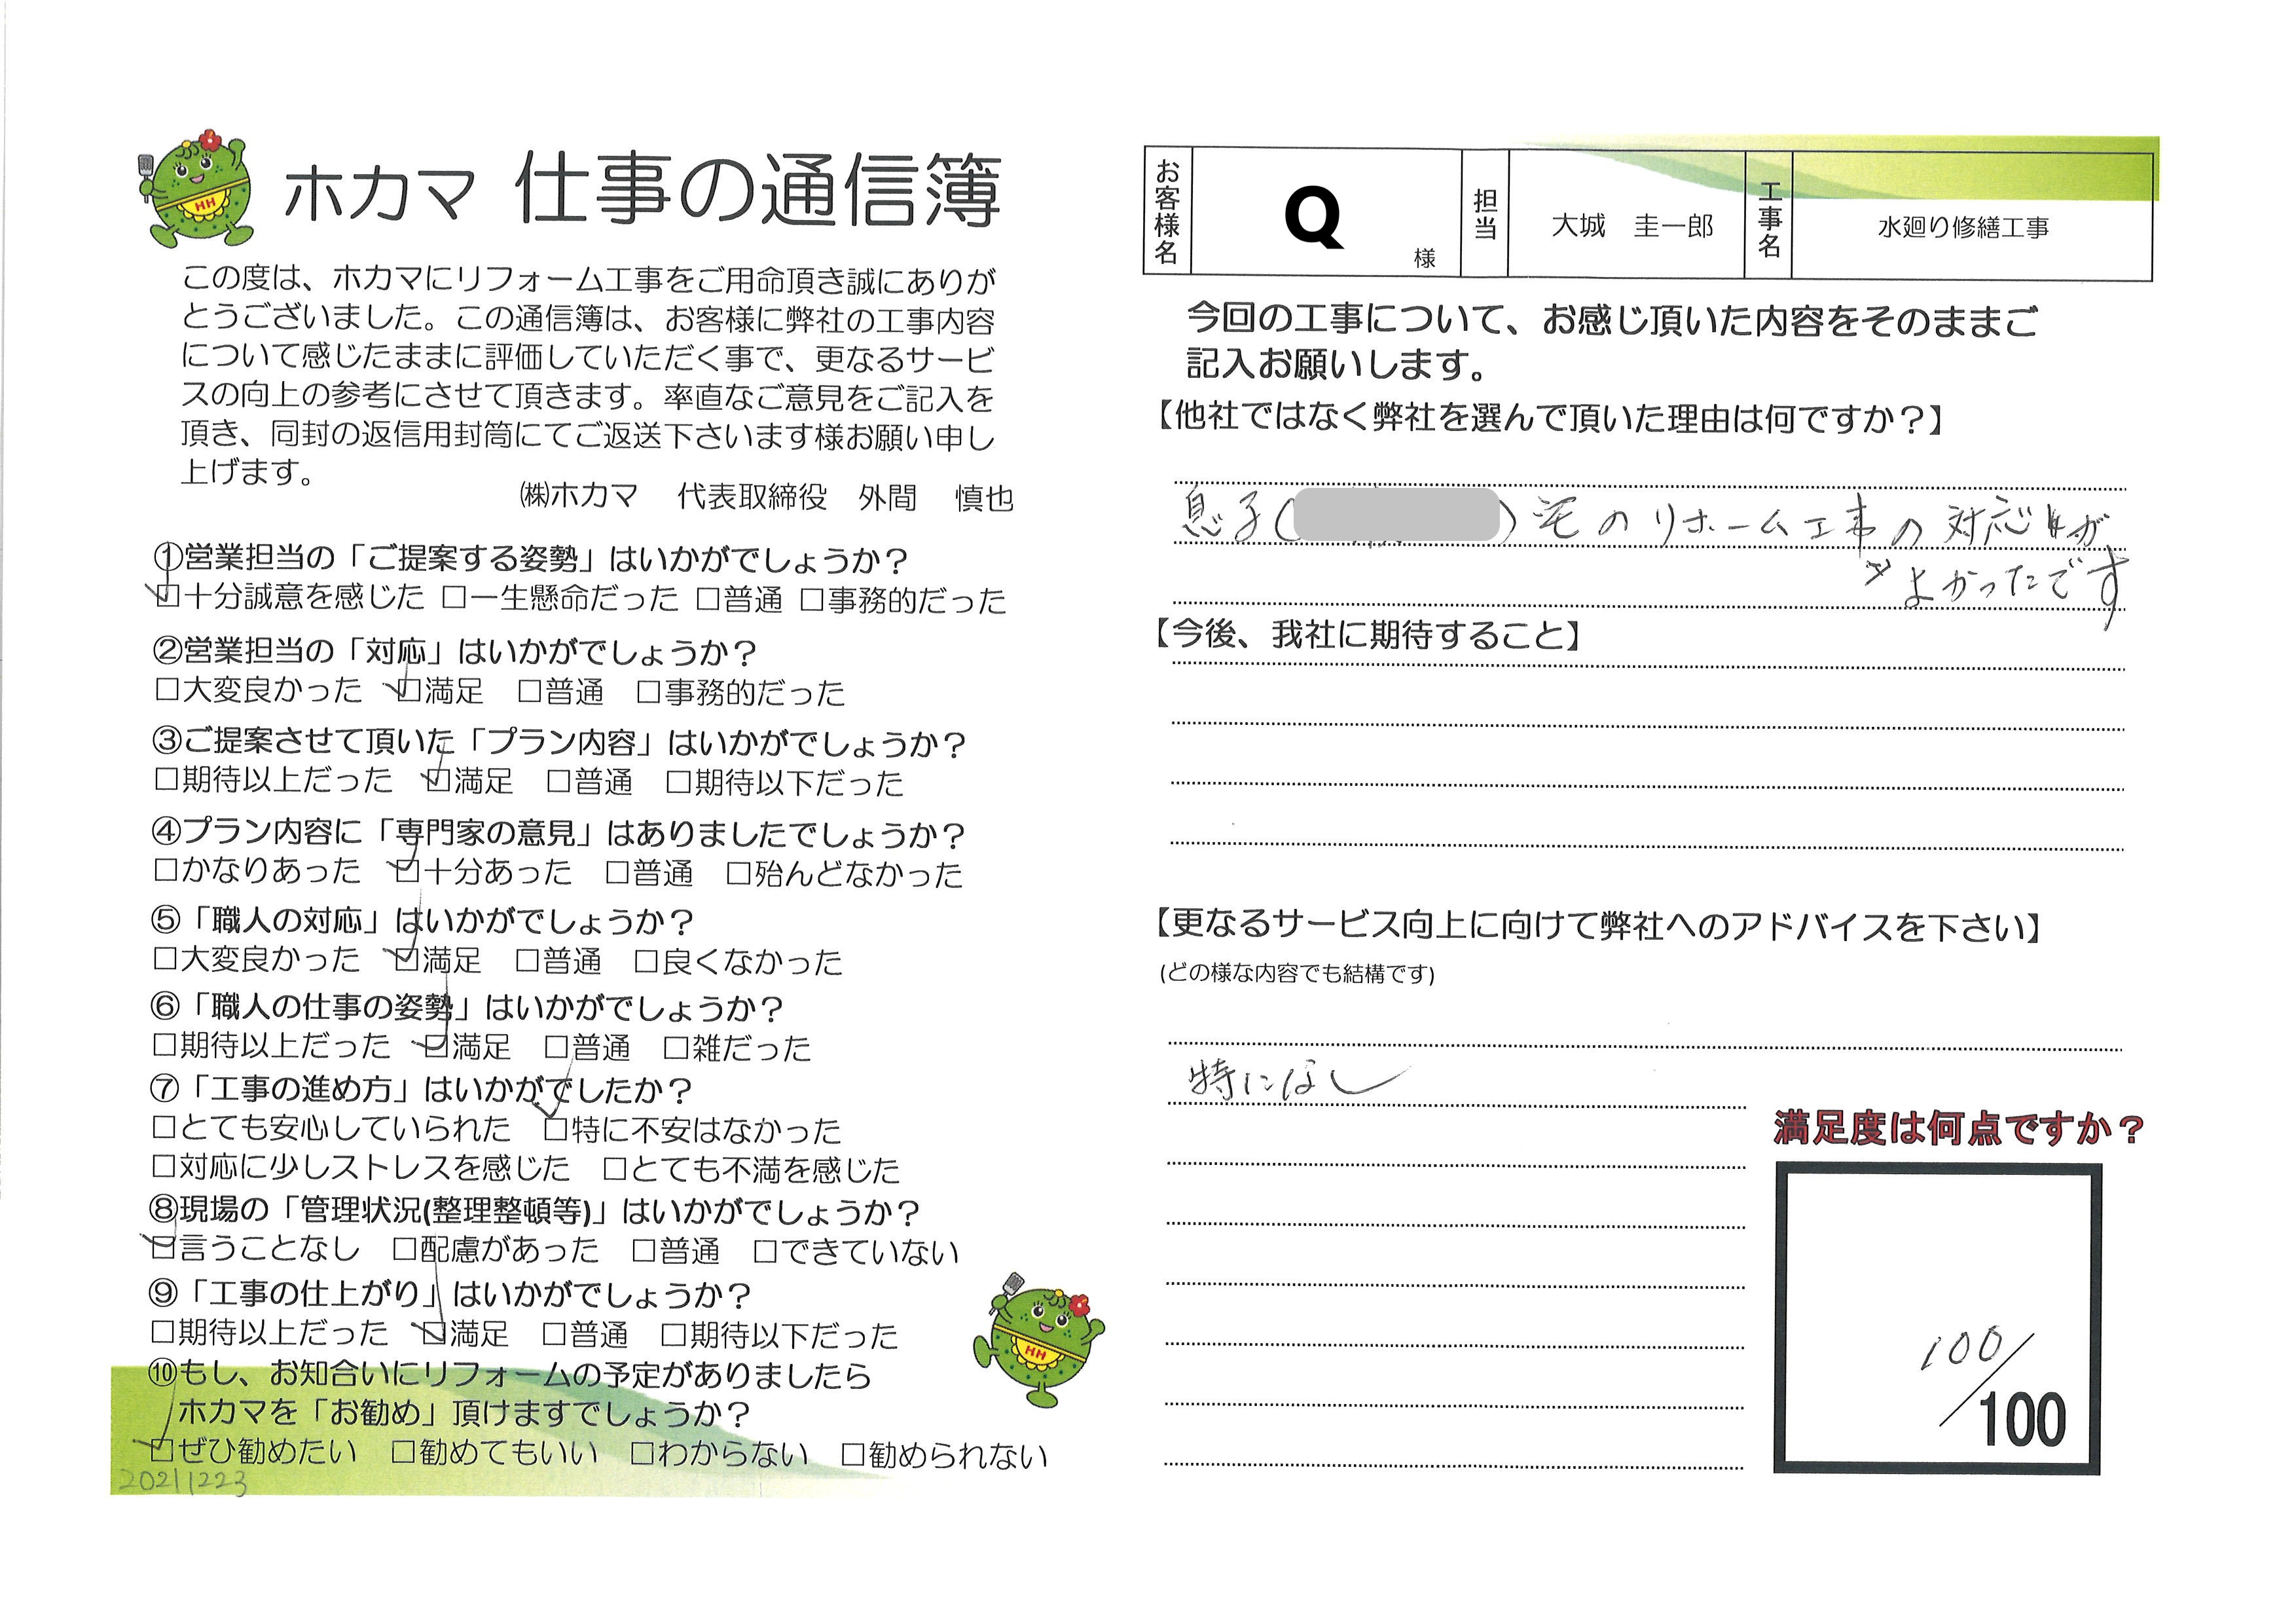 ホカマ 仕事の通信簿
この度は、ホカマにリフォーム工事をご用命頂き誠にありが
とうございました。この通信簿は、お客様に弊社の工事内容
について感じたままに評価していただく事で、更なるサービ
スの向上の参考にさせて頂きます。率直なご意見をご記入を
頂き、同封の返信用封筒にてご返送下さいます様お願い申し
上げます。
㈱ホカマ 代表取締役 外間 慎也
①営業担当の「ご提案する姿勢」はいかがでしょうか？
☑十分誠意を感じた □一生懸命だった □普通 □事務的だった
②営業担当の「対応」はいかがでしょうか？
□大変良かった ☑満足 □普通 □事務的だった
③ご提案させて頂いた「プラン内容」はいかがでしょうか？
□期待以上だった ☑満足 □普通 □期待以下だった
④プラン内容に「専門家の意見」はありましたでしょうか？
□かなりあった ☑十分あった □普通 □殆んどなかった
⑤「職人の対応」はいかがでしょうか？
□大変良かった ☑満足 □普通 □良くなかった
⑥「職人の仕事の姿勢」はいかがでしょうか？
□期待以上だった ☑満足 □普通 □雑だった
⑦「工事の進め方」はいかがでしたか？
□とても安心していられた ☑特に不安はなかった
□対応に少しストレスを感じた □とても不満を感じた
⑧現場の「管理状況(整理整頓等)」はいかがでしょうか？
☑言うことなし □配慮があった □普通 □できていない
⑨「工事の仕上がり」はいかがでしょうか？
□期待以上だった ☑満足 □普通 □期待以下だった
⑩もし、お知合いにリフォームの予定がありましたら
ホカマを「お勧め」頂けますでしょうか？
☑ぜひ勧めたい □勧めてもいい □わからない □勧められない
20211223
HH
HH
お客様名 Q 様 担当 大城 圭一郎 工事名 水廻り修繕工事
今回の工事について、お感じ頂いた内容をそのままご
記入お願いします。
【他社ではなく弊社を選んで頂いた理由は何ですか？】
息子( )宅のリホーム工事の対応が
よかったです
【今後、我社に期待すること】
【更なるサービス向上に向けて弊社へのアドバイスを下さい】
(どの様な内容でも結構です)
特になし
満足度は何点ですか？
100/100